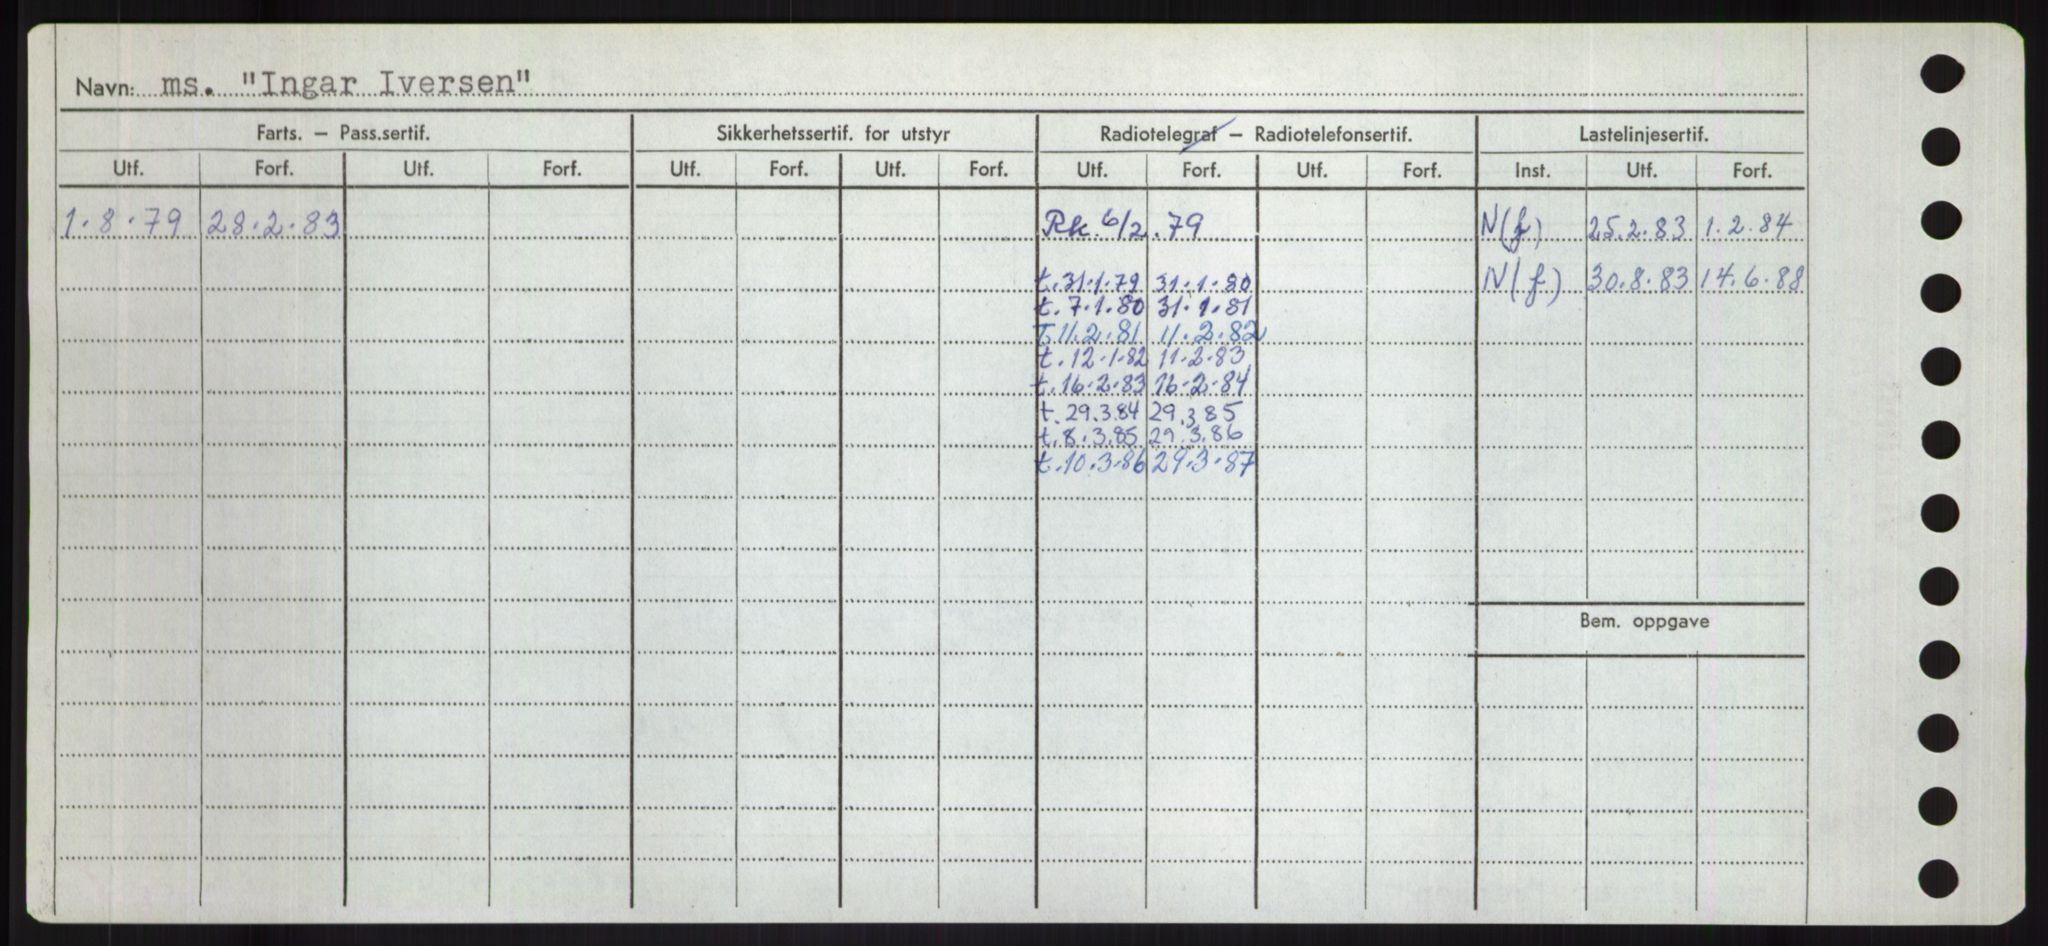 Navn: ms. "Ingar Iversen"
Farts. — Pass.sertif. Sikkerhetssertif. for utstyr Radiotelegraf — Radiotelefonsertif. Lastelinjesertif.
Utf. Forf. Utf. Forf. Utf. Forf. Utf. Forf. Utf. Forf. Utf. Forf. Inst. Utf. Forf.
1.8.79 28.2.83 Rk. 6/2.79 N(f) 25.2.83 1.2.84
t.31.1.79 31.1.80 N(f) 30.8.83 14.6.88
t.7.1.80 31.1.81
T.11.2.81 11.2.82
t.12.1.82 11.2.83
t.16.2.83 16.2.84
t.29.3.84 29.3.85
t.8.3.85 29.3.86
t.10.3.86 29.3.87
Bem. oppgave